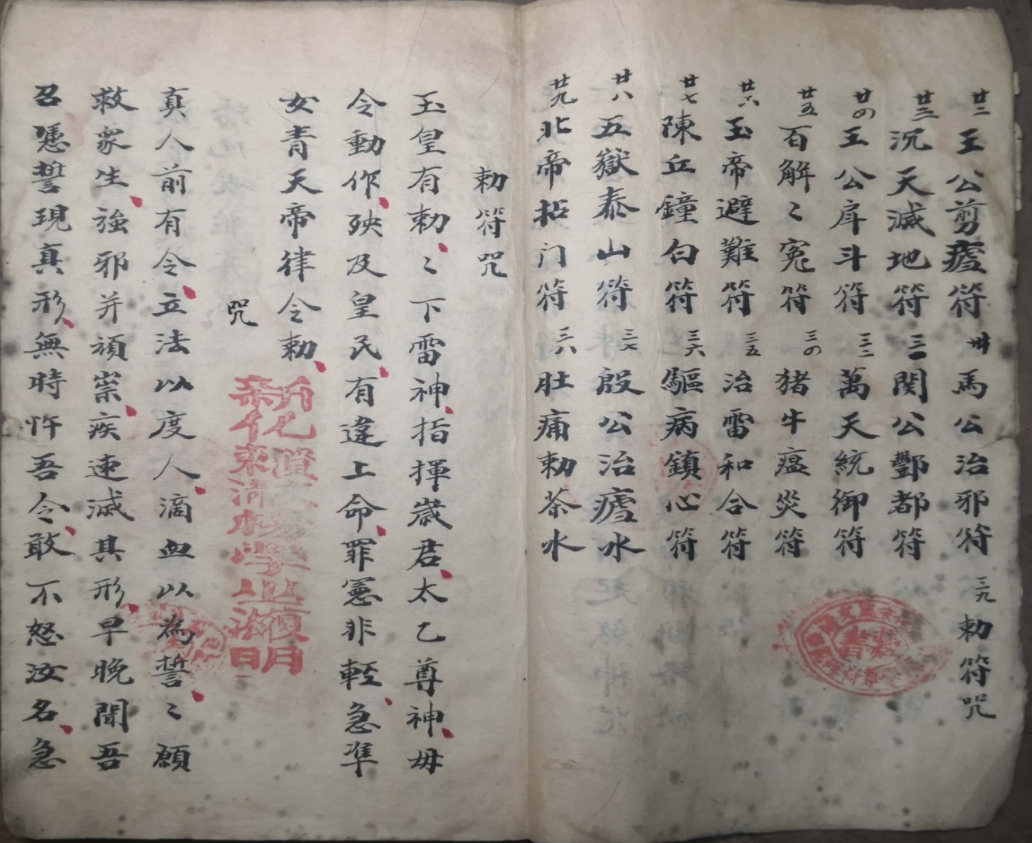 廿二王公剪瘧符 卅馬公治邪符 三九勅符咒
廿三沉天滅地符 三一関公酆都符
廿四王公庠斗符 三二萬天統御符
廿五百解〻冤符 三四猪牛瘟災符
廿六玉帝避難符 三五治雷和合符
廿七陳丘鐘白符 三六驅病鎮心符
廿八五嶽泰山符 三七殷公治瘧水
廿九北帝拈门符 三八肚痛勅茶水
勅符咒
玉皇有勅〻下雷神指揮歲君太乙尊神毋
令動作殃及皇民有違上命罪憲非輕急準
女青天帝律令勅
咒
真人前有令立法以度人滴血以為誓〻願
救衆生強邪并頑祟疾速滅其形早晚聞吾
召憑誓現真形無時忤吾令敢不怒汝名急